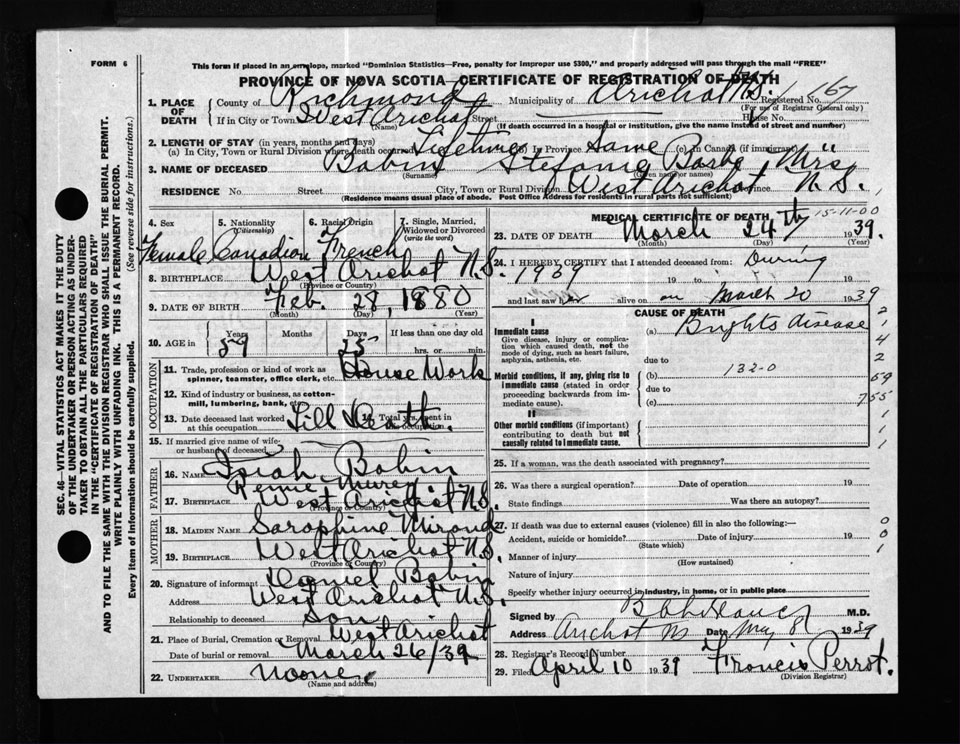 FORM 6
This form if placed in an envelope, marked "Dominion Statistics—Free, penalty for improper use $300," and properly addressed will pass through the mail "FREE"
PROVINCE OF NOVA SCOTIA CERTIFICATE OF REGISTRATION OF DEATH
SEC. 46—VITAL STATISTICS ACT MAKES IT THE DUTY
OF THE UNDERTAKER OR PERSON ACTING AS UNDER-
TAKER TO OBTAIN ALL THE PARTICULARS REQUIRED
IN THE "CERTIFICATE OF REGISTRATION OF DEATH"
AND TO FILE THE SAME WITH THE DIVISION REGISTRAR WHO SHALL ISSUE THE BURIAL PERMIT.
WRITE PLAINLY WITH UNFADING INK. THIS IS A PERMANENT RECORD.
Every item of information should be carefully supplied. (See reverse side for instructions.)
1. PLACE OF DEATH County of Richmond Municipality of Arichat N.S. Registered No. 167
(For use of Registrar General only)
If in City or Town West Arichat Street House No.
(Name) (If death occurred in a hospital or institution, give the name instead of street and number)
2. LENGTH OF STAY (in years, months and days)
(a) In City, Town or Rural Division where death occurred Lifetime (b) In Province Same (c) In Canada (if immigrant)
3. NAME OF DECEASED Babin Stefanie Mrs
(Surname) (Given name or names)
RESIDENCE No. Street City, Town or Rural Division West Arichat Province N.S.
(Residence means usual place of abode. Post Office Address for residents in rural parts not sufficient)
4. Sex 5. Nationality (Citizenship) 6. Racial Origin 7. Single, Married, Widowed or Divorced (write the word)
Female Canadian French
8. BIRTHPLACE West Arichat N.S.
(Province or Country)
9. DATE OF BIRTH Feb. 28, 1880
(Month) (Day) (Year)
10. AGE in Years Months Days If less than one day
59 25 hrs. or min.
OCCUPATION
11. Trade, profession or kind of work as spinner, teamster, office clerk, etc. House Work
12. Kind of industry or business, as cotton-mill, lumbering, bank, etc.
13. Date deceased last worked at this occupation Till Death. 14. Total yrs. spent in this occupation
15. If married give name of wife or husband of deceased Isiah Babin
FATHER
16. NAME
17. BIRTHPLACE West Arichat N.S.
(Province or Country)
MOTHER
18. MAIDEN NAME Saraphine
19. BIRTHPLACE West Arichat N.S.
(Province or Country)
20. Signature of informant Daniel Babin
Address West Arichat N.S.
Relationship to deceased Son
21. Place of Burial, Cremation or Removal West Arichat
Date of burial or removal March 26/39
22. UNDERTAKER None
(Name and address)
MEDICAL CERTIFICATE OF DEATH 15-11-00
23. DATE OF DEATH March 24th 1939.
(Month) (Day) (Year)
24. I HEREBY CERTIFY that I attended deceased from: During
1939 19 to 19
and last saw her alive on March 20 1939
CAUSE OF DEATH
I
Immediate cause (a) Brights disease
Give disease, injury or complication which caused death, not the mode of dying, such as heart failure, asphyxia, asthenia, etc.
due to
Morbid conditions, if any, giving rise to immediate cause (stated in order proceeding backwards from immediate cause). (b) 132-0
due to
(c)
II
Other morbid conditions (if important) contributing to death but not causally related to immediate cause.
2
1
4
2
59
755
1
1
1
25. If a woman, was the death associated with pregnancy?
26. Was there a surgical operation? Date of operation 19
State findings Was there an autopsy?
27. If death was due to external causes (violence) fill in also the following:—
Accident, suicide or homicide? Date of injury 19
(State which)
Manner of injury
(How sustained)
Nature of injury
Specify whether injury occurred in industry, in home, or in public place
0
0
1
Signed by M.D.
Address Arichat NS Date May 8 1939
28. Registrar's Record Number
29. Filed April 10 1939 Francis Perrot.
(Division Registrar)